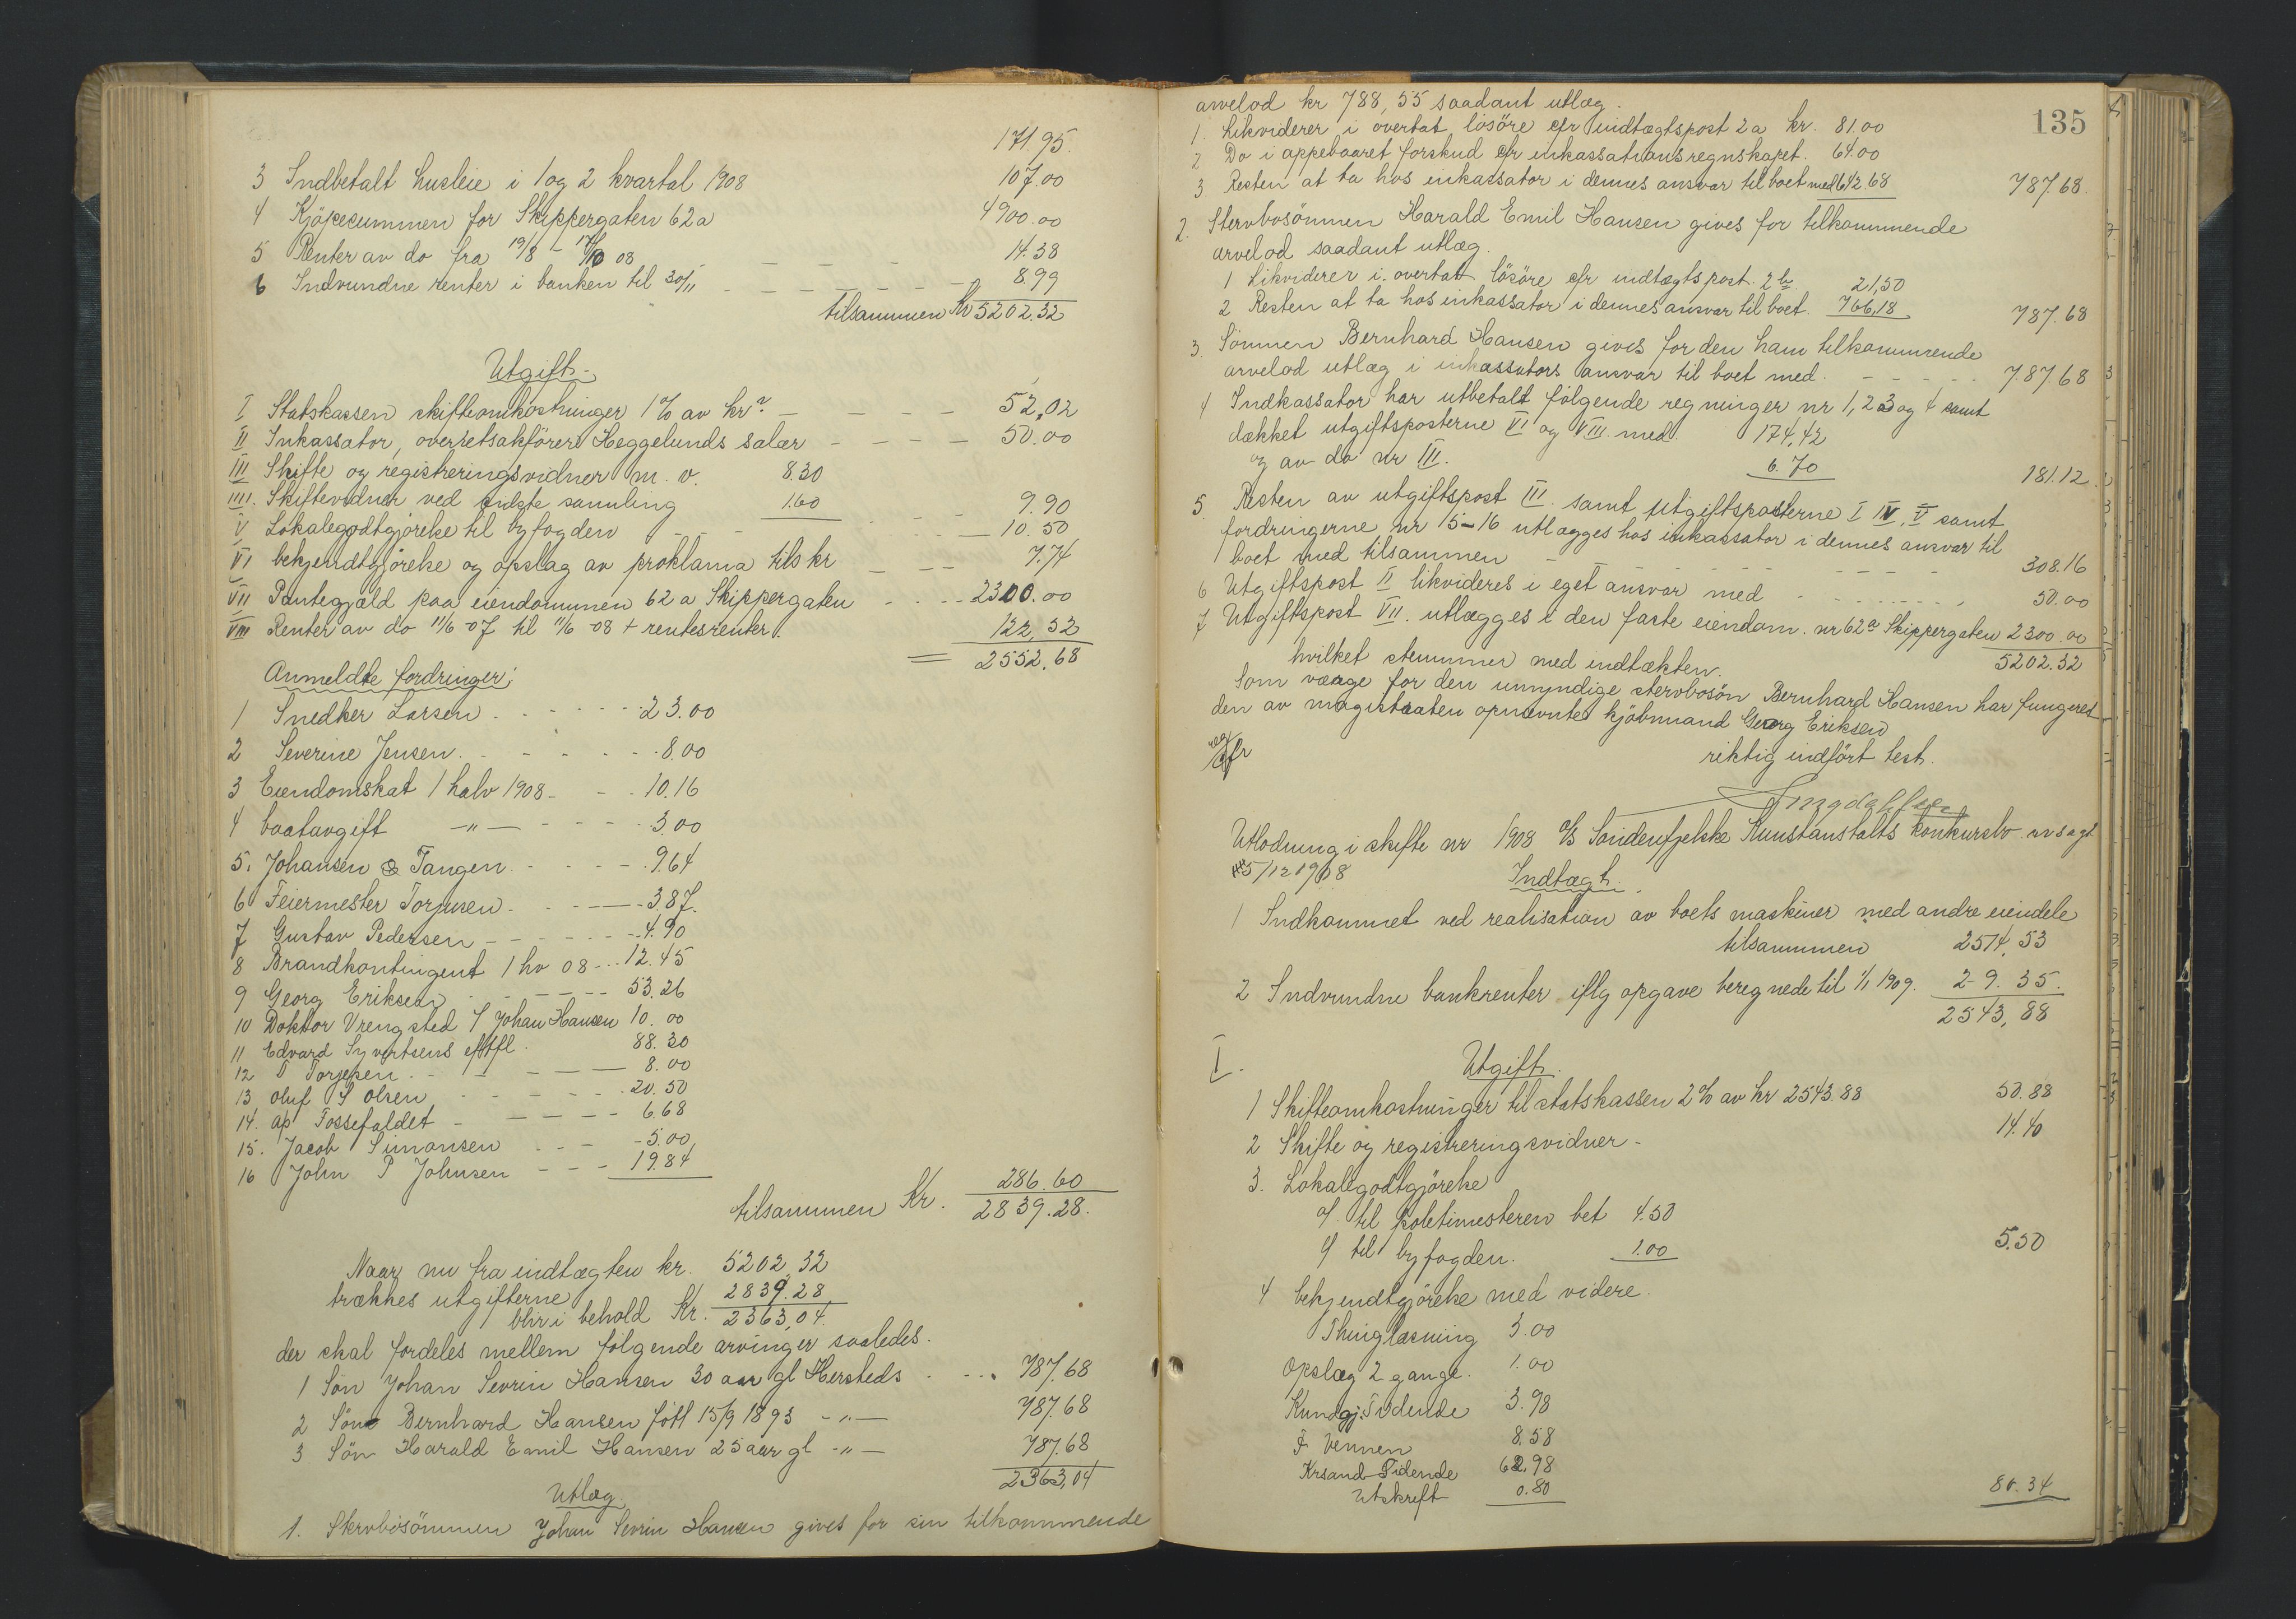 171.95.
3 Indbetalt husleie i 1 og 2 kvartal 1908 107.00
4 Kjöpesummen for Skippergaten 62a 4900.00
5 Renter av do fra 19/8 - 17/10 08 - - - 14.38
6 Indvundne renter i banken til 30/11 - - - - - - 8.99
tilsammen Kr 5202.32
Utgift-
I Statskassen skifteomkostninger 1% av kr - - - - - 52,02
II Inkassator, overretsakförer Heggelunds salær - - - - 50.00
III Skifte og registreringsvidner m. v. 8.30
IIII. Skiftevidner ved sidste samling 1.60 9.90
V Lokalegodtgjörelse til byfogden - - - - - 10.50
VI bekjendtgjörelse og opslag av proklama tils kr - - - 7.74
VII Pantegjæld paa eiendommen 62a Skippergaten - - - - 2300.00
VIII Renter av do 11/6 -07 til 11/6 -08 + rentesrenter. 122,52
= 2552.68
Anmeldte fordringer;
1 Snedker Larsen - - - - - 23.00
2 Severine Jensen. - - - - - 8.00
3 Eiendomskat 1 halv 1908 - - - 10.16
4 baatavgift -"- - - - - 3.00
5. Johansen & Tangen. - - - - 9.64
6 Feiermester Torjusen. - - - - 3 87.
7 Gustav Pedersen - - - - - - 4.90
8 Brandkontingent 1 hv 08 - - - 12.45
9 Georg Eriksen - - - - - - 53.26
10 Doktor Vrengsted f Johan Hansen 10.00
11 Edvard Syvertsens eftfl. 88.30
12 T Torjesen. - - - - - - 8.00
13 Oluf S Olsen - - - - - - 20.50
14. ap Fossefaldet - - - - - 6.68
15. Jacob Simonsen - - - - 5.00,
16 John P Johnsen - - - 19.84
286.60
tilsammen Kr. 2839.28.
Naar nu fra indtægten kr. 5202,32
trækkes utgifterne 2839.28
blir i behold Kr. 2363,04.
der skal fordeles mellem følgende arvinger saaledes.
1 Sön Johan Sevrin Hansen 30 aar gl Hersteds . . . . 787.68
2 Sön Bernhard Hansen fött 15/9 1893 -"- 787.68
3 Sön Harald Emil Hansen 25 aar gl -"- 787.68
2363,04
Utlæg.
1. Stervbosönnen Johan Sevrin Hansen gives for sin tilkommende
135
arvelod kr 788,55 saadant utlæg.
1. Likviderer i overtat lösöre cfr indtægtspost 2a kr. 81.00
2 Do i oppebaaret forskud cfr inkassationsregnskapet. 64.00
3 Resten at ta hos inkassator i dennes ansvar til boet med 642.68 787.68.
2. Stervbosönnen Harald Emil Hansen gives for tilkommende
arvelod saadant utlæg.
1 Likviderer i overtat lösöre cfr indtægtspost 2b 21,50
2 Resten at ta hos inkassator i dennes ansvar til boet. 766,18 787.68
3. Sönnen Bernhard Hansen gives for den ham tilkommende
arvelod utlæg i inkassators ansvar til boet med. - - - - - 787.68
4 Indkassator har utbetalt følgende regninger nr 1, 2 3 og 4 samt
dækket utgiftsposterne VI og VIII med. 174,42
og av do nr III. 6.70 181.12
5. Resten av utgiftspost III. samt utgiftsposterne I IV, V samt
fordringerne nr 15-16 utlægges hos inkassator i dennes ansvar til
boet med tilsammen - - - - - - 308.16
6 Utgiftspost II likvideres i eget ansvar med - - - - - - 50.00
7 Utgiftspost VII. utlægges i den faste eiendom. nr 62a Skippergaten 2300.00
hvilket stemmer med indtækten. 5202.32
Som værge for den umyndige stervbosön Bernhard Hansen har fungeret
den av magistraten opnævnte kjöbmand Georg Eriksen
cfr
riktig indfört test.
Utlodning i skifte nr 1908 A/S Söndenfjelske Kunstanstalts konkursbo avsagt
5/12 1908
Indtægt.
1 Indkommet ved realisation av boets maskiner med andre eiendele
tilsammen 2514,53
2 Indvundne bankrenter iflg opgave beregnede til 1/1 1909. 29.35.
2543,88
I. Utgift.
1 Skifteomkostninger til statskassen 2% av kr 2543.88 50.88
2 Skifte og registreringsvidner - 14.40
3. Lokalegodtgjörelse
a/ til politimesteren bet 4.50
b/ til byfogden. 1.00 5.50
4 bekjendtgjörelse med videre.
Thinglæsning 3.00
Opslag 2 gange. 1.00
Kundgj. Tidende 3.98
F Vennen 8.58
Krsand Tidende 62,98
Utskrift 0.80 80.34